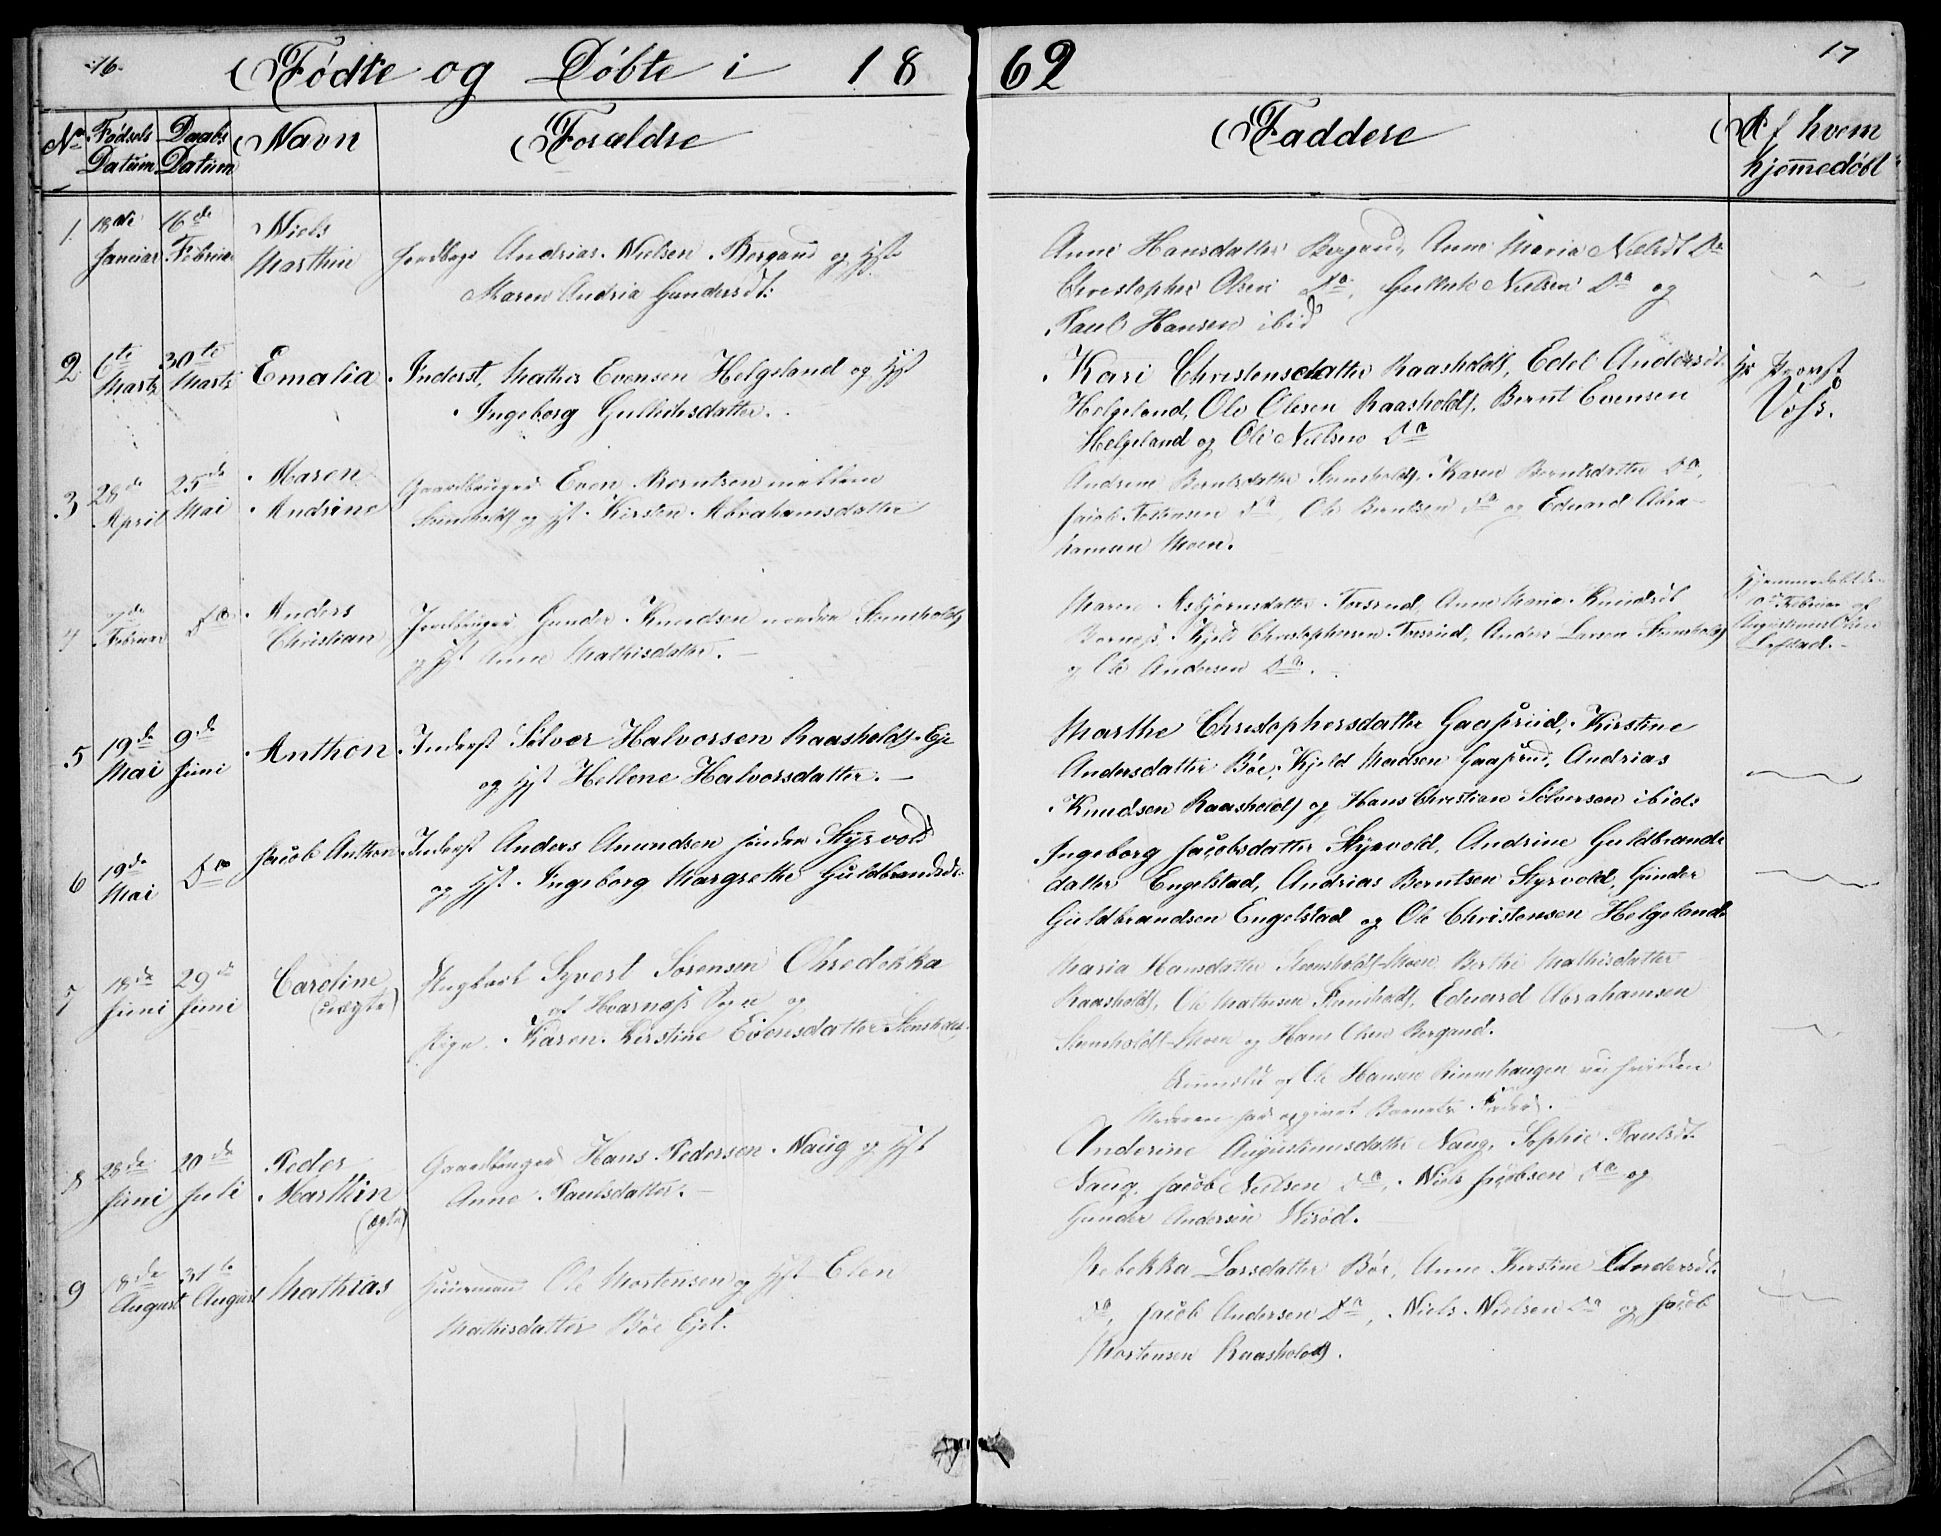 16.
Fødte og Døbte i 18 62
17
No Fødsels Datum Daabs Datum Navn Forældre Faddere Af hvem hjemmedøbt
1. 18de Januar 16de Februar Niels Marthin
Andrias Nielsen Bergand og Hst
Maren Andria Gundersdt:
Anne Hansdatter Bergand, Anne Maria Nielsdt Do
Christopher Olsen Do, Gulbek Nielsen Do og
Paul Hansen ibid
2 6te Marts 30te Marts Emalia
Inderst, Mathis Evensen Helgeland og Hst
Ingeborg Gullichsdatter.
Kari Christensdatter Raasholdt, Edel Andersdt.
Helgeland, Ole Olesen Raasholdt, Bernt Evensen
Helgeland og Ole Nielsen Do
Hr Provst
Voss.
3 28de April 25de Mai Maren Andrine
Gaardbruger Even Berntsen mellem
Stensholdt og Hst Kirsten Abrahamsdatter
Andrine Berntsdatter Stensholdt, Karen Berntsdatter Do,
Jacob Do, Ole Berntsen Do og Eduard Abra-
hamsen Moen.
4 7de Februar Do Anders Christian
Jordbruger Gunder Knudsen nordre Stensholdt
og Hst Anne Mathisdatter. -
Maren Asbjørnsdatter Torsrud, Anne Maria Knudsdt
Kjeld Christophersen Torsrud, Anders Larsen Stensholdt
og Ole Andersen Do.
Hjemmedøbt
Februar af
Olsen
5 19de Mai 9de Juni Anthon
Inderst Sølver Halvorsen Raasholdt Eje
og Hst Hellene Halvorsdatter. -
Marthe Christophersdatter Gaasrud, Kirstine
Andersdatter Bøe, Kjeld Madsen Gaasrud, Andrias
Knudsen Raasholdt og Hans Christian Sølversen ibid.
6 19de Mai Do Jacob Anthon
Inderst Anders Amundsen søndre Styrvold
og Hst. Ingeborg Margrethe Guldbrandsdt.
Ingeborg Jacobsdatter Styrvold, Andrine Guldbrands
datter Engelstad, Andrias Berntsen Styrvold, Gunder
Guldbrandsen Engelstad og Ole Christensen Helgeland.
7 18de Juni 29de Juni Caroline (uægte)
Ungkarl Syvert Sørensen Ohredekka
af Hvarnæss Sogn og
Pige Karen Kirstine Evensdatter Stensholdt.
Maria Hansdatter Stensholdt-Moen, Berthe Mathisdatter
Raasholdt, Ole Mathisen Stensholdt, Eduard Abrahamsen
Stensholdt-Moen og Hans Olsen Bergand.
Anmeldt af Ole Hansen
Moderen har opgivet Barnets Fader.
8 28de Juni 20de Juli Peder Marthin (ægte)
Gaardbruger Hans Pedersen Naug og Hst
Anne Paulsdatter. -
Anderine Augustinusdatter Naug, Sophie Paulsdt.
Naug, Jacob Nielsen Do, Niels Jacobsen Do og
Gunder Andersen Wirød.
9 18de August 31te August Mathias
Huusmand Ole Mortensen og Hst Elen
Mathisdatter Bøe Ejet.
Rebekka Larsdatter Bøe, Anne Kirstine Andersdt.
Do, Jacob Andersen Do, Niels Nielsen Do og Jacob
Mortensen Raasholdt.